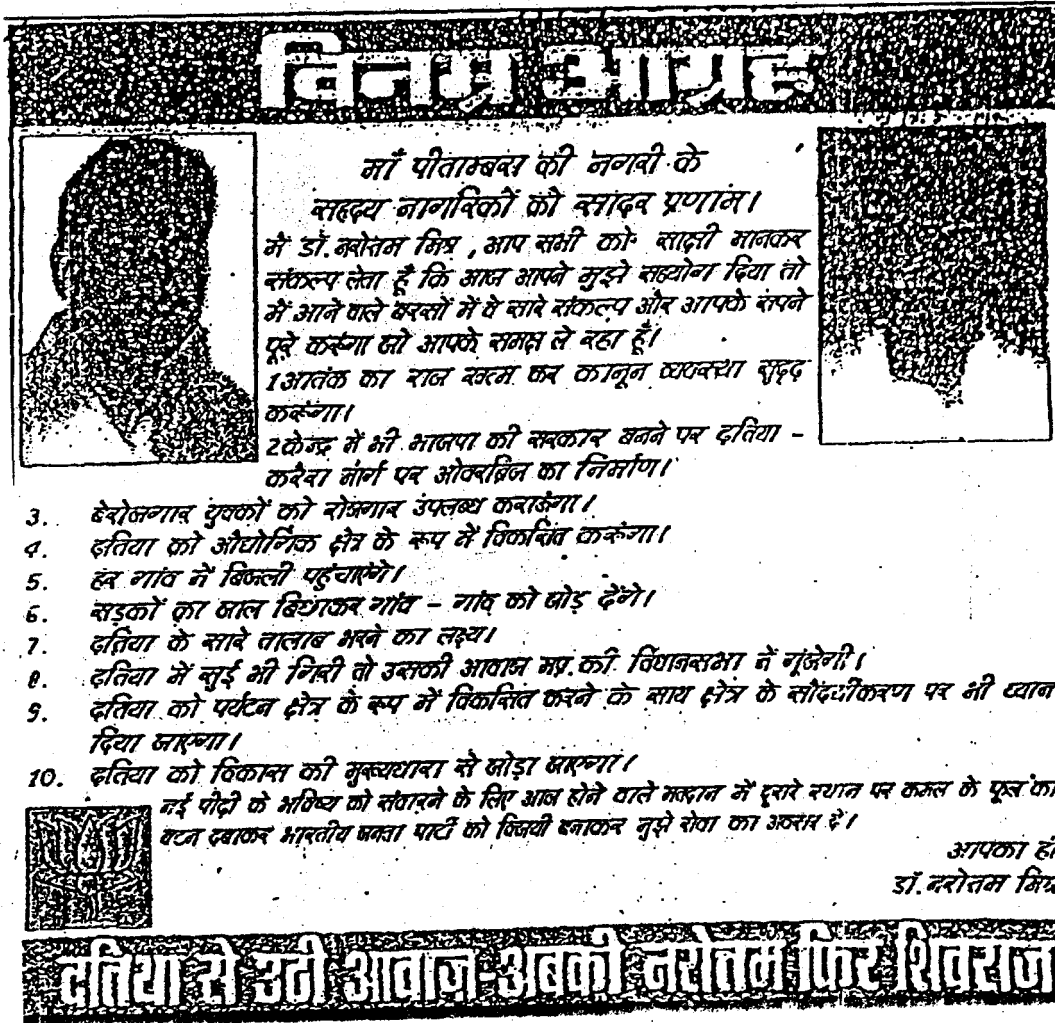 विनम्र आग्रह
माँ पीताम्बरा की नगरी के
सहृदय नागरिकों को सादर प्रणाम।
मैं डॉ.नरोत्तम मिश्र , आप सभी को साक्षी मानकर
संकल्प लेता हूँ कि आज आपने मुझे सहयोग दिया तो
मैं आने वाले बरसों में वे सारे संकल्प और आपके सपने
पूरे करूंगा जो आपके समक्ष ले रहा हूँ।
1आतंक का राज खत्म कर कानून व्यवस्था सुदृढ़
करूंगा।
2केन्द्र में भी भाजपा की सरकार बनने पर दतिया -
करैरा मार्ग पर ओवरब्रिज का निर्माण।
3. बेरोजगार युवकों को रोजगार उपलब्ध कराऊंगा।
4. दतिया को औद्योगिक क्षेत्र के रूप में विकसित करूंगा।
5. हर गांव में बिजली पहुंचाएंगे।
6. सड़कों का जाल बिछाकर गांव - गांव को जोड़ देंगे।
7. दतिया के सारे तालाब भरने का लक्ष्य।
8. दतिया में सुई भी गिरी तो उसकी आवाज मप्र.की विधानसभा में गूंजेगी।
9. दतिया को पर्यटन क्षेत्र के रूप में विकसित करने के साथ क्षेत्र के सौंदर्यीकरण पर भी ध्यान
दिया जाएगा।
10. दतिया को विकास की मुख्यधारा से जोड़ा जाएगा।
नई पीढ़ी के भविष्य को संवारने के लिए आज होने वाले मतदान में दूसरे स्थान पर कमल के फूल का
बटन दबाकर भारतीय जनता पार्टी को विजयी बनाकर मुझे सेवा का अवसर दें।
आपका ही
डॉ.नरोत्तम मिश्र
दतिया से उठी आवाज़-अबकी नरोत्तम फिर शिवराज